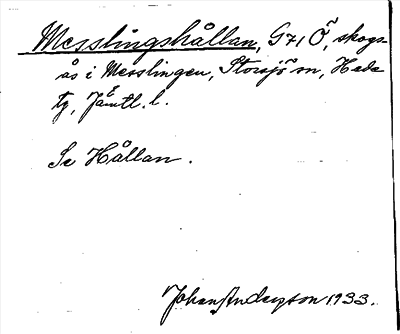 Messlingshållan, G71 Ö, skogs-
ås i Messlingen, Storsjö sn, Hede
tg, Jämtl. l.
Se Hållan.
Johan Anderzson 1933.